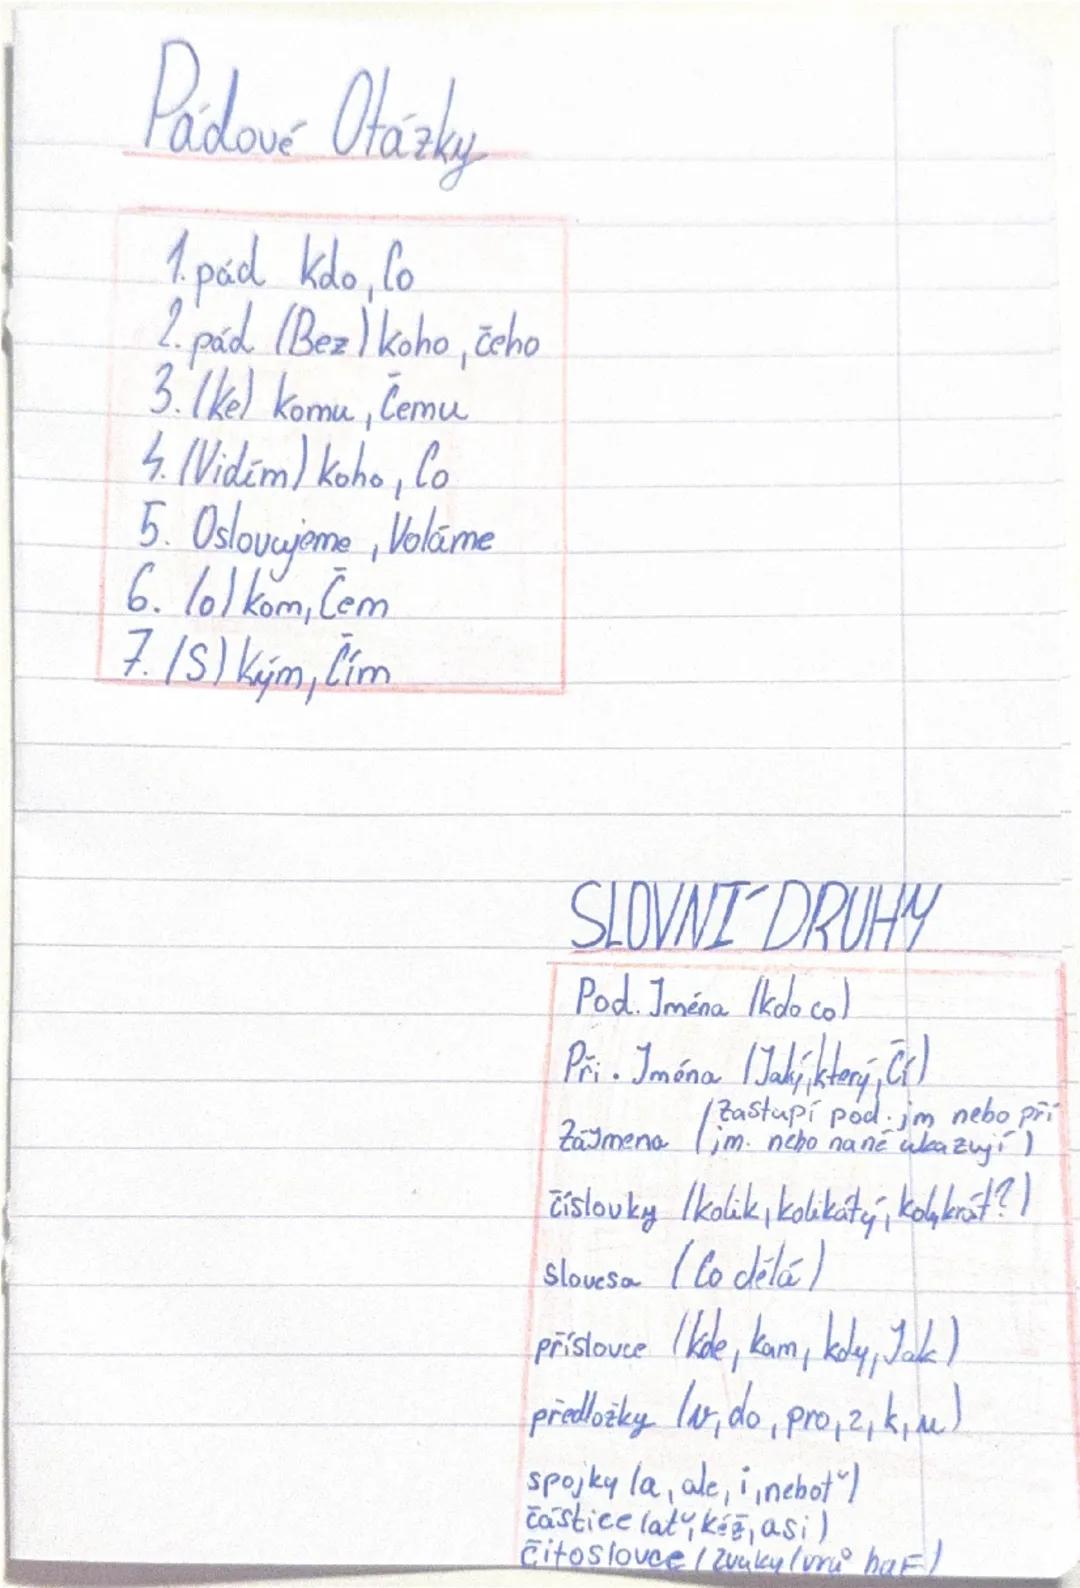 Pádové Otázky
1. pád kdo, Co
2. pád (Bez) koho, čeho
3. (ke) komu, Čemu
4. (Vidím) koho, Co
5. Oslovujeme, Voláme
6. (o) kom, Čem
7. (S) kým, Čím
SLOVNÍ DRUHY
Pod. Jména (kdo co)
Pří. Jména (Jaký, který, Čí)
(Zastupí pod. jm nebo pří
Zájmena jm. nebo na ně ukazují)
číslovky (kolik, kolikátý, kolikrát?)
slovesa (Co dělá)
příslovce (kde, kam, kdy, Jak)
předložky (v, do, pro, z, k, u)
spojky (a, ale, i, neboť)
částice (ať, kéž, asi)
Čitoslovce (zvuky (vrů haF)